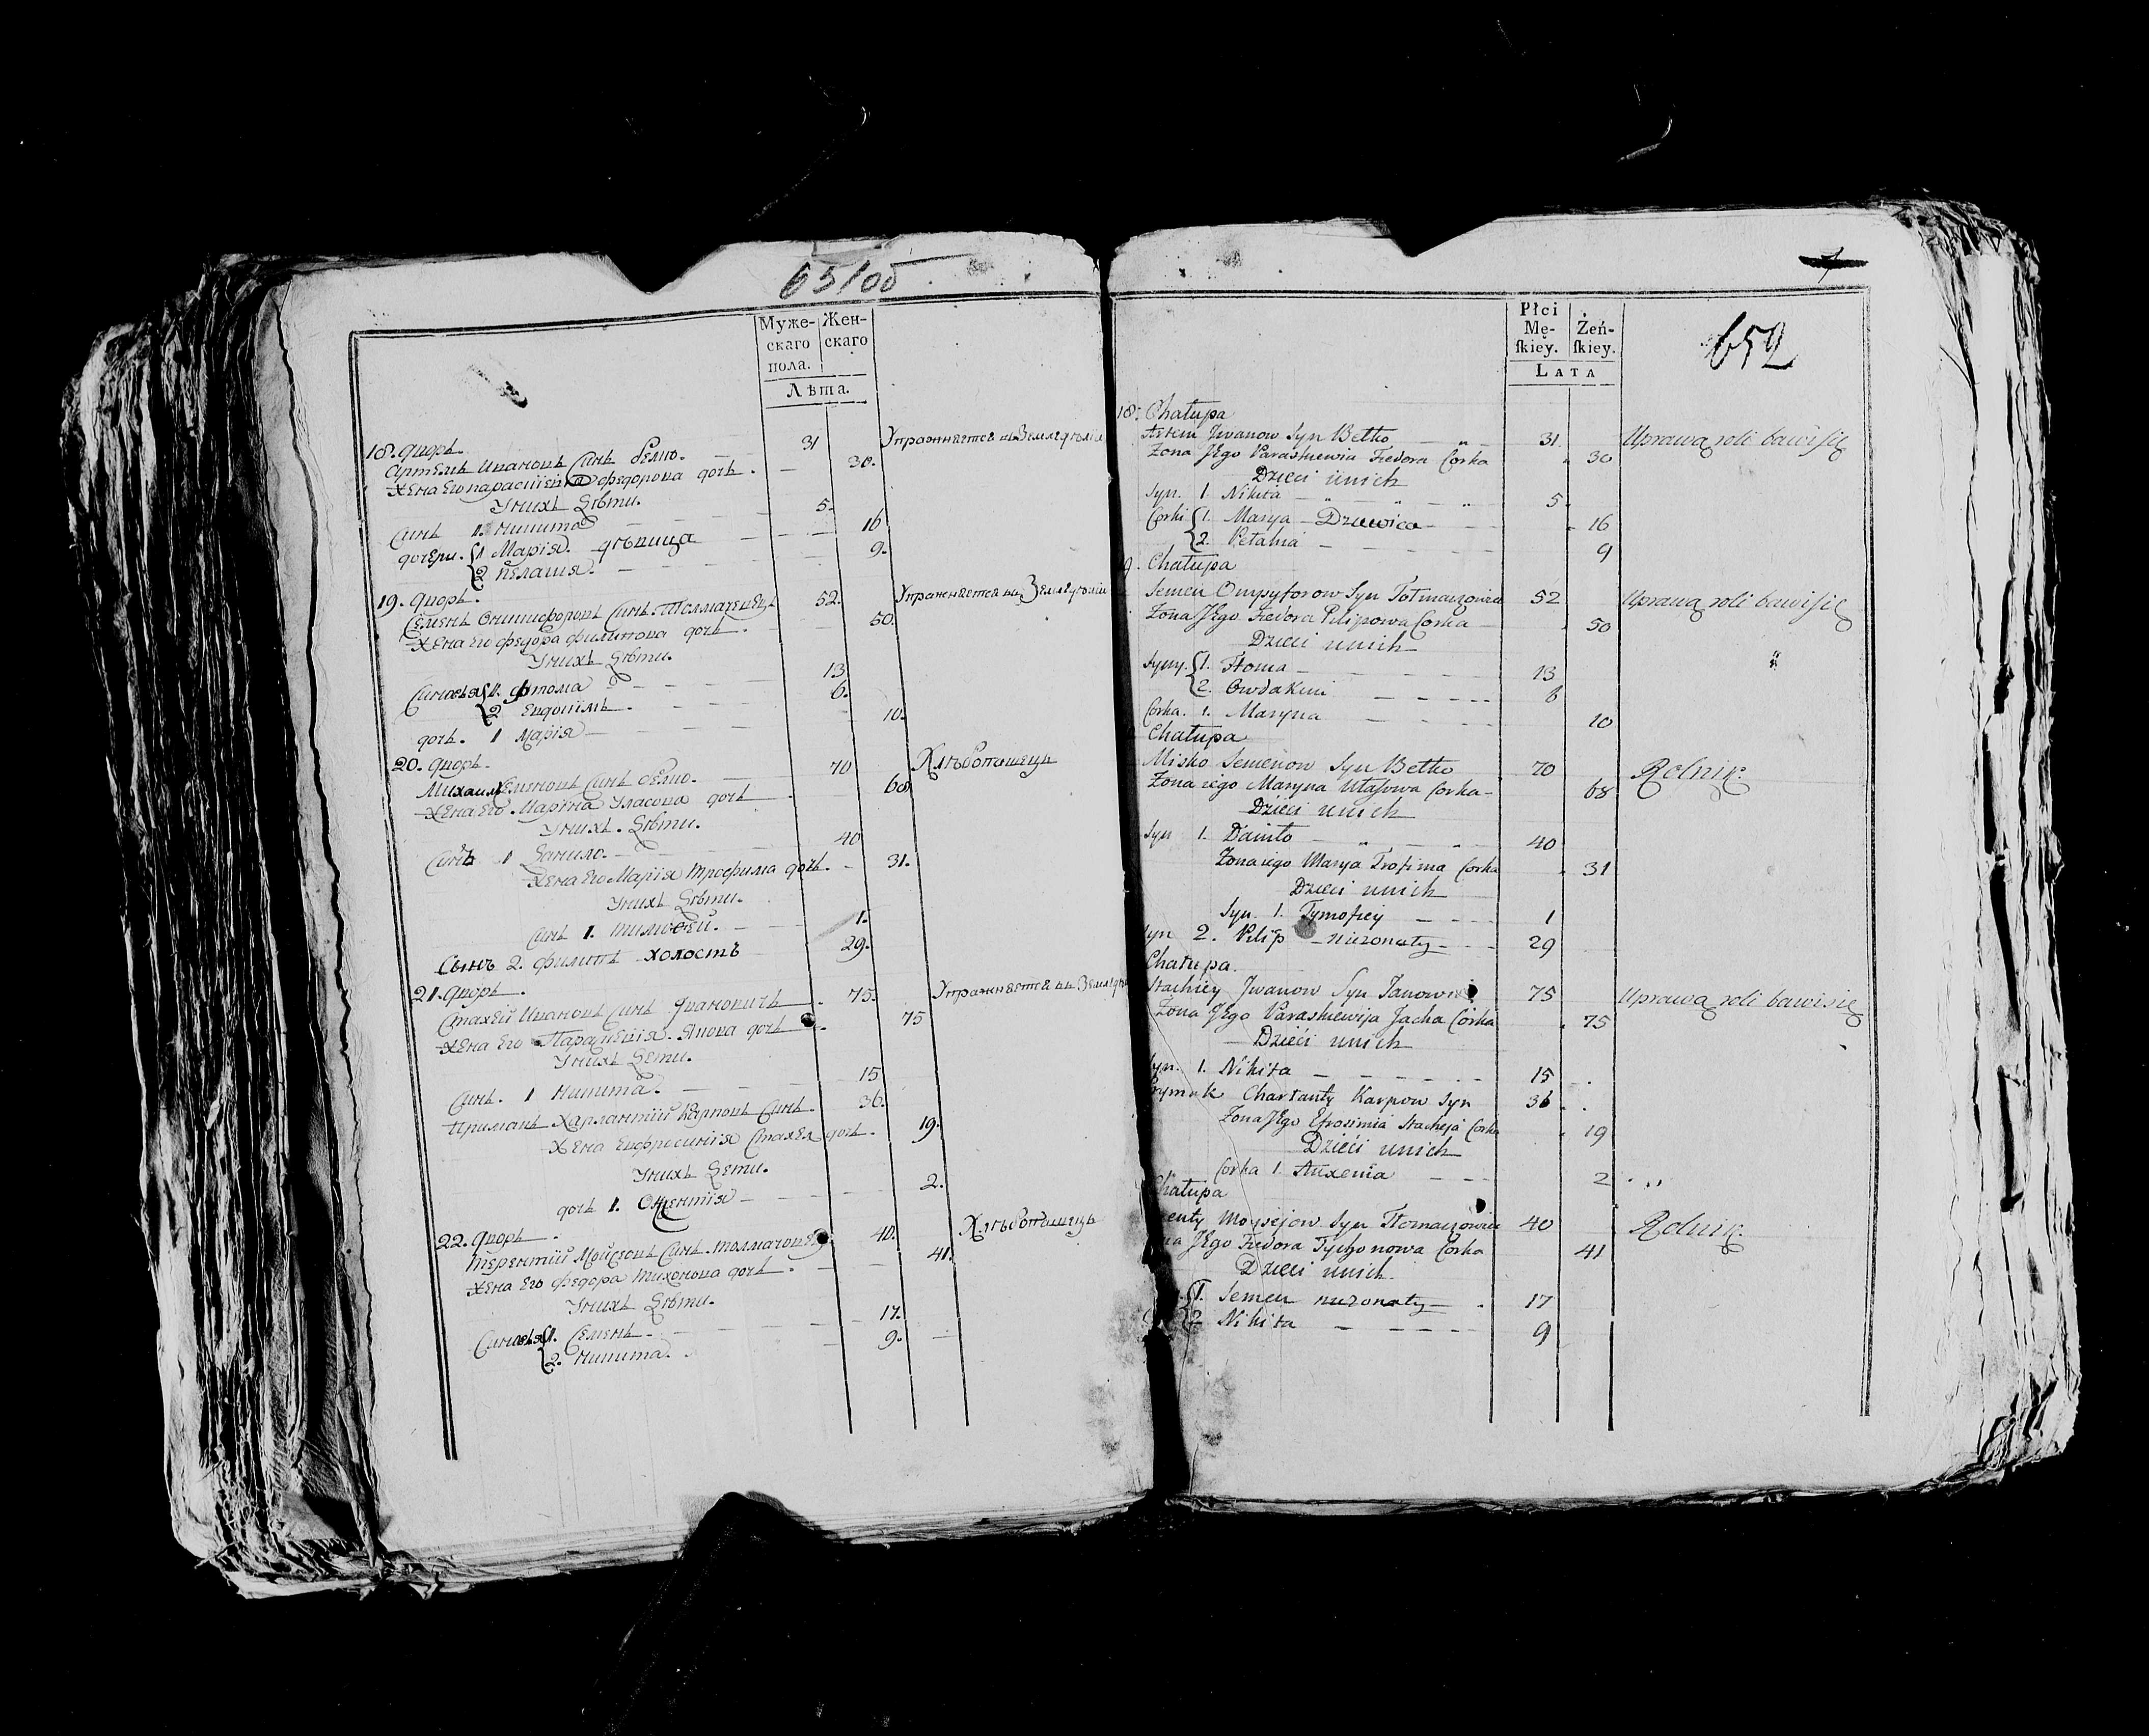 651об
Муже-
скаго
пола.
Жен-
скаго
Лѣта.
18. дворъ.
Артемъ Ивановъ Синъ Белко. 31 Упражняется въ Земледѣлiи
Жена Его Параскiева Федорова дочь. 30.
У нихъ Дѣти.
Синъ 1. Никита 5.
дочери. 1 Марiя. дѣвица 16
2 Пелагия. 9.
19. дворъ.
Семенъ Онисифоровъ Синъ Толмачевецъ 52. Упражняется въ Земледѣлiи
Жена Его Федора Филипова дочь. 50.
У нихъ Дѣти.
Синовья 1. Фтома 13
2 Евдокiмъ. 6.
дочь. 1 Марiя 10.
20. дворъ.
Михаилъ Семеновъ Синъ Белко. 70 Хлѣбопашецъ
Жена Его. Марiна Уласова дочь 68
У нихъ. Дѣти.
Синъ 1 Данило. 40
Жена Его Марiя Трофима дочь. 31.
У нихъ Дѣти.
Синъ 1. Тимофей. 1.
Сынъ 2. Филипъ холостъ 29.
21. дворъ.
Стахей Ивановъ Синъ Яновичъ 75. Упражняется въ
Жена Его Параскевiя. Яхова дочь. 75
У нихъ Дети.
Синъ. 1 Никита. 15
Примакъ Харлантiй Карповъ Синъ. 36.
Жена Евфросинiя Стахея дочь. 19.
У нихъ Дети.
дочь 1. 2.
22. дворъ.
Терентiй Мойсеовъ Синъ. 40. Хлѣбопашецъ
Жена Его Федора Тихонова дочь. 41.
У нихъ Дѣти.
Синовья 1. Семенъ. 17.
2. Никита. 9.
7
652
Płci
Mę-
ſkiey.
Żeń-
ſkiey.
Lata
18. Chałupa
Artem Jwanow Syn Bełko 31. Uprawą roli bawi się
Żona Jego Paraskiewia Fiedora Corka 30
Dzieci u nich
Syn. 1. Nikita 5.
Corki 1. Marya Dziewica 16
2. Pełahia 9
9. Chałupa
Semen Onysyforow Syn Tołmaczowiec 52 Uprawą roli bawi się
Żona Jego Fiedora Pilipowa Corka 50
Dzieci u nich
Syny. 1. Floma 13
2. Owdakim 6
Corka. 1. Maryna 10
Chałupa
Misko Semenow Syn Bełko 70 Rolnik.
Żona iego Maryna Ułasowa Corka 68
Dzieci u nich
Syn 1. Daniło 40
Żona iego Marya Trofima Corka 31
Dzieci u nich
Syn. 1. Tymofiey 1
Syn 2. Pilip nieżonaty 29
Chałupa.
Stachiey Jwanow Syn 75 Uprawą roli bawi się
Żona Jego Paraskiewija Jacha Corka 75
Dzieci u nich
Syn. 1. Nikita 15
Prymak Charłanty Karpow Syn 36
Żona Jego Efrosimia Stacheja Corka 19
Dzieci u nich
Corka 1. Auxenia 2
Chałupa
enty Moysiejow Syn Tłomaczowiec 40 Rolnik.
na Jego Fiedora Tychonowa Corka 41
Dzieci u nich.
1. Semen nieżonaty 17
2. Nikita 9